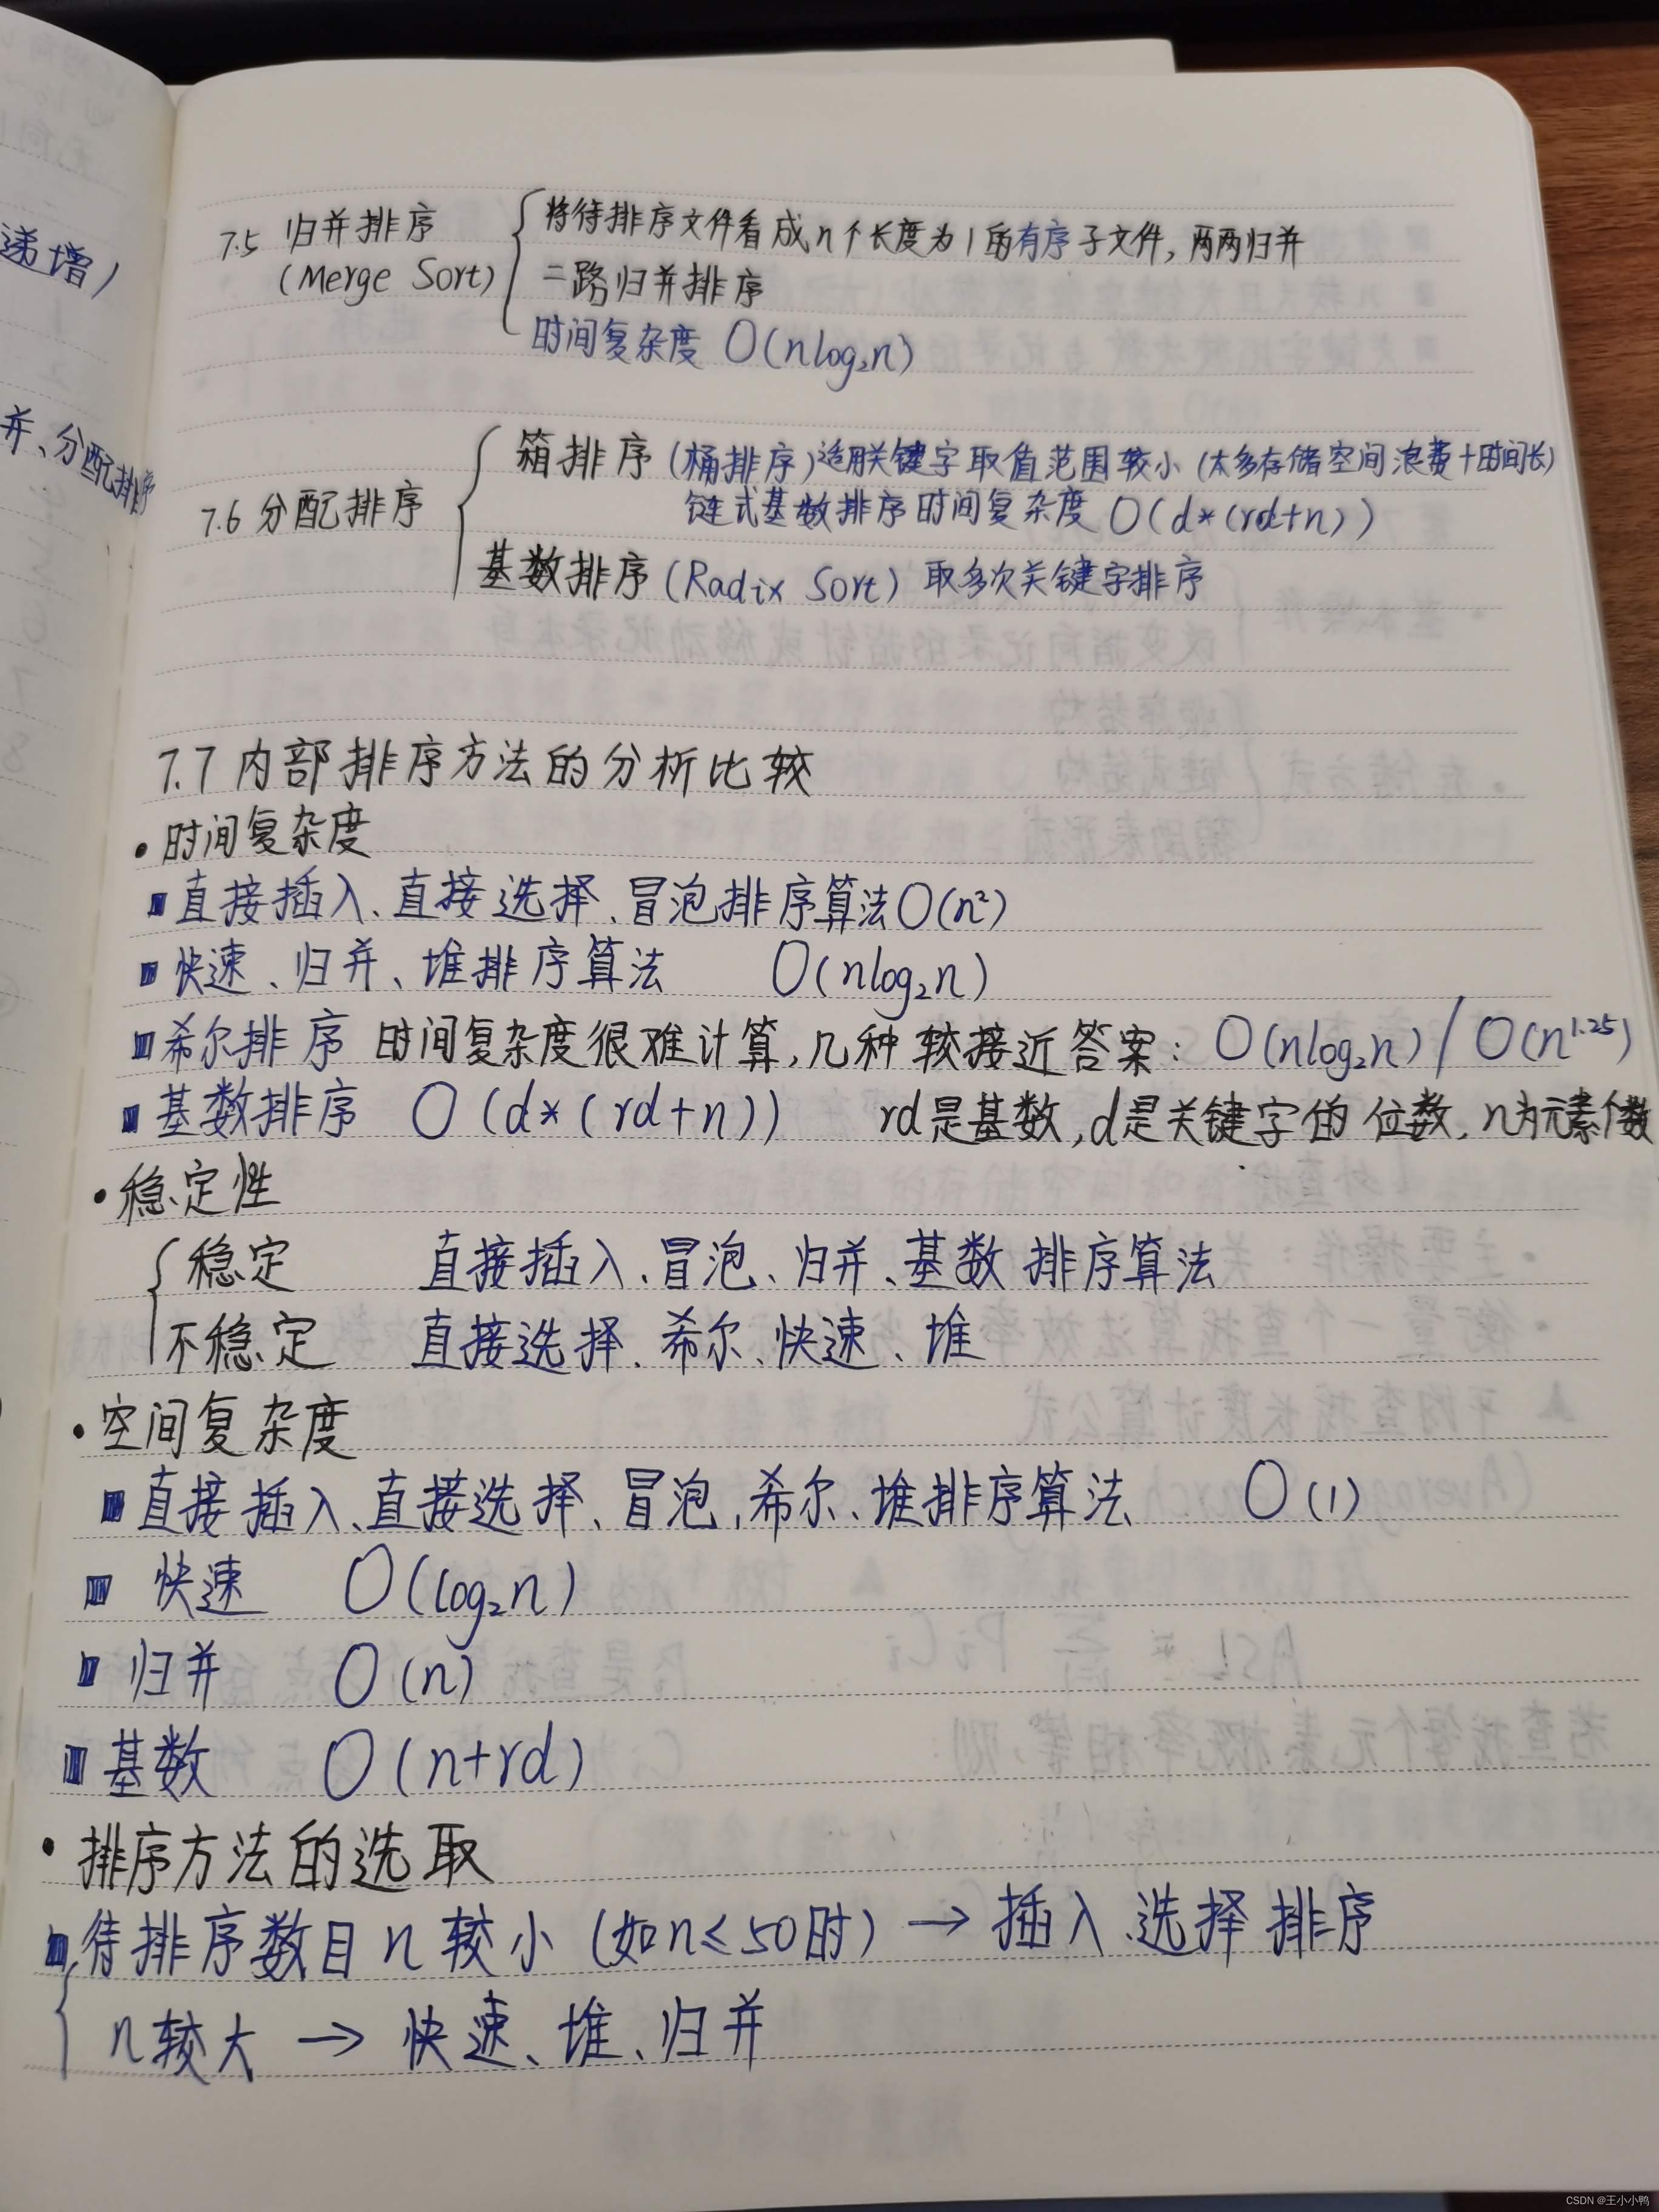 递增)
并、分配排序
7.5 归并排序
(Merge Sort)
将待排序文件看成n个长度为1的有序子文件,两两归并
二路归并排序
时间复杂度 O(nlog₂n)
7.6 分配排序
箱排序(桶排序)适用关键字取值范围较小(太多存储空间浪费+时间长)
链式基数排序时间复杂度 O(d*(rd+n))
基数排序(Radix Sort) 取多次关键字排序
7.7 内部排序方法的分析比较
• 时间复杂度
■ 直接插入、直接选择、冒泡排序算法O(n²)
■ 快速、归并、堆排序算法 O(nlog₂n)
■ 希尔排序 时间复杂度很难计算,几种较接近答案: O(nlog₂n) / O(n^1.25)
■ 基数排序 O(d*(rd+n)) rd是基数,d是关键字的位数,n为元素个数
• 稳定性
稳定 直接插入、冒泡、归并、基数排序算法
不稳定 直接选择、希尔、快速、堆
• 空间复杂度
■ 直接插入、直接选择、冒泡,希尔、堆排序算法 O(1)
■ 快速 O(log₂n)
■ 归并 O(n)
■ 基数 O(n+rd)
• 排序方法的选取
■ 待排序数目n较小(如n≤50时) → 插入、选择排序
n较大 → 快速、堆、归并
CSDN @王小小鸭